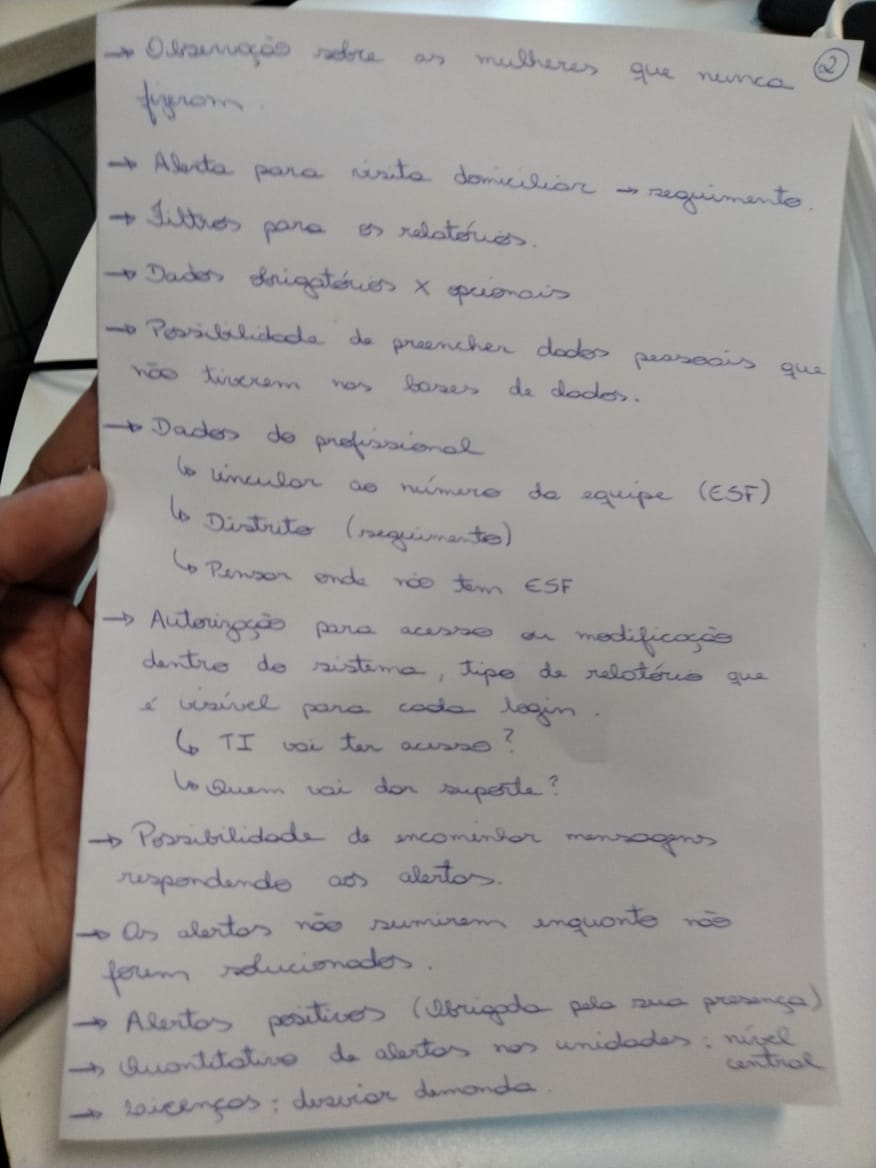 → Observação sobre as mulheres que nunca ②
fizeram.
→ Alerta para visita domiciliar → seguimento.
→ Filtros para os relatórios.
→ Dados obrigatórios x opcionais
→ Possibilidade de preencher dados pessoais que
não tiverem nas bases de dados.
→ Dados do profissional
↳ vincular ao número da equipe (ESF)
↳ Distrito (seguimento)
↳ Pensar onde não tem ESF
→ Autorização para acesso ou modificação
dentro do sistema, tipo de relatório que
é visível para cada login.
↳ TI vai ter acesso?
↳ Quem vai dar suporte?
→ Possibilidade de encaminhar mensagens
respondendo aos alertas.
→ Os alertas não sumirem enquanto não
forem solucionados.
→ Alertas positivos (Obrigada pela sua presença)
→ Quantitativo de alertas nas unidades: nível
central
→ Licenças: desviar demanda.